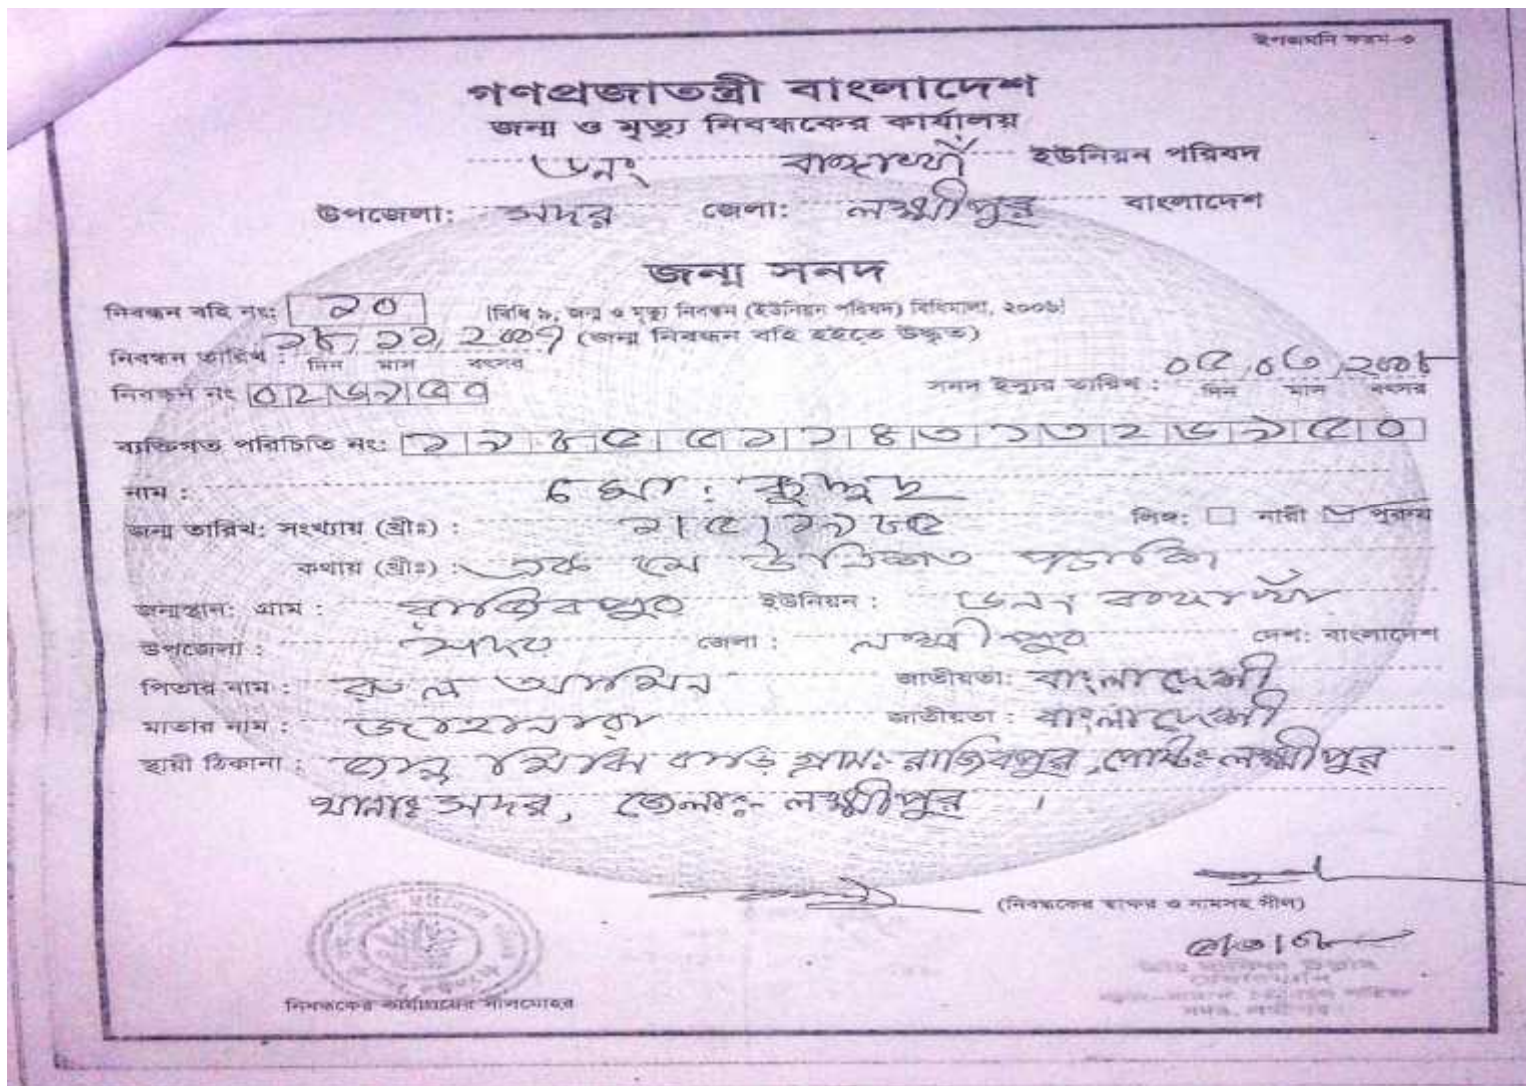 ইপজমনি ফরম-৩
গণপ্রজাতন্ত্রী বাংলাদেশ
জন্ম ও মৃত্যু নিবন্ধকের কার্যালয়
৬নং বাঙ্গাখাঁ ইউনিয়ন পরিষদ
উপজেলা: সদর জেলা: লক্ষ্মীপুর বাংলাদেশ
জন্ম সনদ
নিবন্ধন বহি নং: ১০ [বিধি ৯, জন্ম ও মৃত্যু নিবন্ধন (ইউনিয়ন পরিষদ) বিধিমালা, ২০০৬]
(জন্ম নিবন্ধন বহি হইতে উদ্ধৃত)
নিবন্ধন তারিখ : দিন মাস বৎসর সনদ ইস্যুর তারিখ : ০৫,০৩,২০০৮ দিন মাস বৎসর
নিবন্ধন নং ০২৬৯৫০
ব্যক্তিগত পরিচিতি নং:
নাম : মো:
জন্ম তারিখ: সংখ্যায় (খ্রীঃ) : ১|৫|১৯৮৫ লিঙ্গ: নারী পুরুষ
কথায় (খ্রীঃ) : এক মে উনিশশত পচাশি
জন্মস্থান: গ্রাম : রাজিবপুর ইউনিয়ন : ৬নং বাঙ্গাখাঁ
উপজেলা : সদর জেলা : লক্ষ্মীপুর দেশ: বাংলাদেশ
পিতার নাম : রুহুল আমিন জাতীয়তা: বাংলাদেশী
মাতার নাম : জাহানারা জাতীয়তা : বাংলাদেশী
স্থায়ী ঠিকানা : মিঝি বাড়ি গ্রাম: রাজিবপুর, পোষ্টঃ লক্ষ্মীপুর
থানাঃ সদর, জেলাঃ- লক্ষ্মীপুর ।
(নিবন্ধকের স্বাক্ষর ও নামসহ সীল)
নিবন্ধকের কার্যালয়ের সীলমোহর